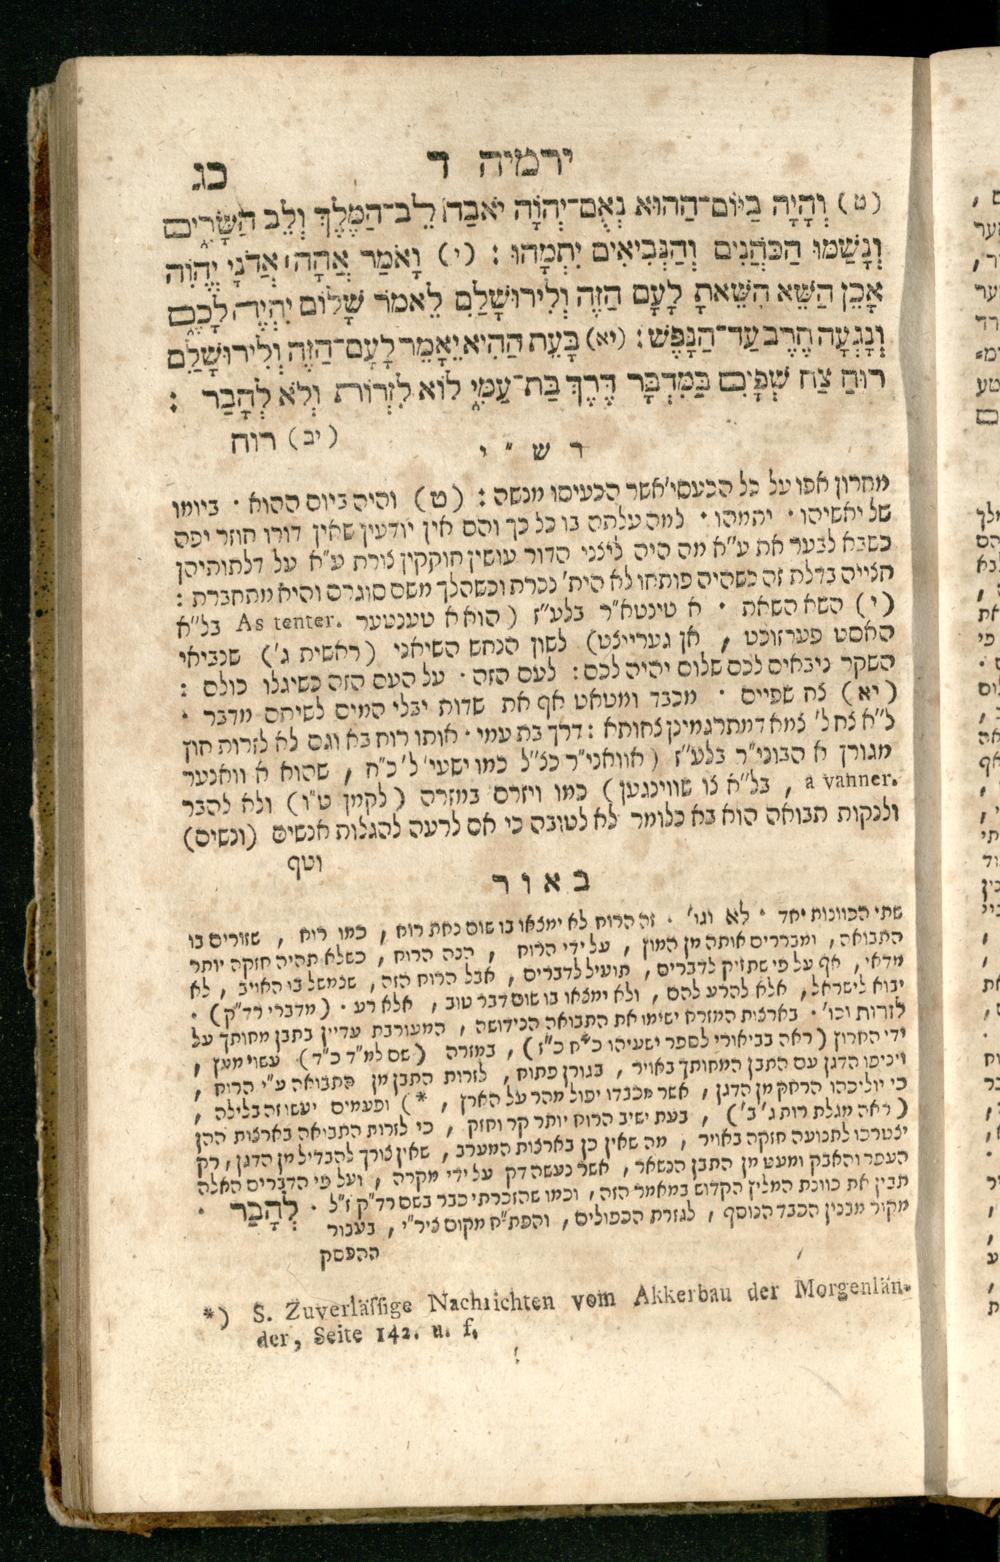 ירמיה ד כג
(ט) וְהָיָה בַיּוֹם־הַהוּא נְאֻם־יְהוָֹה יֹאבַד לֵב־הַמֶּלֶךְ וְלֵב הַשָּׂרִים
וְנָשַׁמּוּ הַכֹּהֲנִים וְהַנְּבִיאִים יִתְמָהוּ : (י) וָאֹמַר אֲהָהּ אֲדֹנָי יֱהֹוִה
אָכֵן הַשֵּׁא הִשֵּׁאתָ לָעָם הַזֶּה וְלִירוּשָׁלַםִ לֵאמֹר שָׁלוֹם יִהְיֶה לָכֶם
וְנָגְעָה חֶרֶב עַד־הַנָּפֶשׁ : (יא) בָּעֵת הַהִיא יֵאָמֵר לָעָם־הַזֶּה וְלִירוּשָׁלַםִ
רוּחַ צַח שְׁפָיִם בַּמִּדְבָּר דֶּרֶךְ בַּת־עַמִּי לוֹא לִזְרוֹת וְלֹא לְהָבַר :
(יב) רוח
ר ש " י
מחרון אפו על כל הכעסי' אשר הכעיסו מנשה : (ט) והיה ביום ההוא · ביומו
של יאשיהו · יתמהו · למה עלתה בו כל כך והם אין יודעין שאין דורו חוזר יפה
כשבא לבער את ע"א מה היה ליצני הדור עושין חוקקין צורת ע"א על דלתותיהן
חצייה בדלת זה כשהיה פותחו לא הית' נכרת וכשהלך משם סוגרם והיא מתחברת :
(י) השא השאת · א טינטא"ר בלע"ז (הוא א טענטער As tenter. בל"א
האסט פערזוכט , אן גערייצט) לשון הנחש השיאני (ראשית ג') שנביאי
השקר ניבאים לכם שלום יהיה לכם : לעם הזה · על העם הזה כשיגלו כולם :
(יא) צח שפיים · מכבד ומטאט אף את שדות יבלי המים לשיתם מדבר ·
ל"א צח ל' צמא דמתרגמינן צחותא : דרך בת עמי · אותו רוח בא וגם לא לזרות חוץ
מגורן א הבוני"ר בלע"ז (אוואני"ר כצ"ל כמו ישעי' ל' כ"ח , שהוא א וואנער
a vanner. , בל"א צו שווינגען) כמו ויזרם במזרה (לקמן ט"ו) ולא להבר
ולנקות תבואה הוא בא כלומר לא לטובה כי אם לרעה להגלות אנשים (ונשים)
וטף
ב א ו ר
שתי הכוונות יחד · לא וגו' · זה הרוח לא ימצאו בו שום נחת רוח , כמו רוח , שזורים בו
התבואה , ומבררים אותה מן המוץ , על ידי הרוח , הנה הרוח , כשלא תהיה חזקה יותר
מדאי , אף על פי שתזיק לדברים , תועיל לדברים , אבל הרוח הזה , שנמשל בו האויב , לא
יבוא לישראל , אלא להרע להם , ולא ימצאו בו שום דבר טוב , אלא רע · (מדברי רד"ק) ·
לזרות וכו' · בארצות המזרח ישימו את התבואה הנידושה , המעורבת עדיין בתבן מחותך על
ידי החרוץ (ראה בביאורי לספר ישעיהו כ"ח כ"ז) , במזרה (שם למ"ד כ"ד) עשוי מעץ ,
ויניפו הדגן עם התבן המחותך באויר , בגורן פתוח , לזרות התבן מן התבואה ע"י הרוח ,
כי יוליכהו הרחק מן הדגן , אשר מכבדו יפול מהר על הארץ , *) ופעמים יעשו זה בלילה ,
(ראה מגלת רות ג' ב') , בעת ישיב הרוח יותר קר וחזק , כי לזרות התבואה בארצות ההן
יצטרכו לתנועה חזקה באויר , מה שאין כן בארצות המערב , שאין צורך להבדיל מן הדגן , רק
העפר והאבק ומעט מן התבן הנשאר , אשר נעשה דק על ידי מקרה , ועל פי הדברים האלה
תבין את כוונת המליץ הקדוש במאמר הזה , וכמו שהזכרתי כבר בשם רד"ק ז"ל · לְהָבַר ·
מקור מבנין הכבד הנוסף , לגזרת הכפולים , והפת"ח מקום ציר"י , בעבור
ההפסק
*) S. Zuverläſſige Nachrichten vom Akkerbau der Morgenlän-
der, Seite 142. u. f.